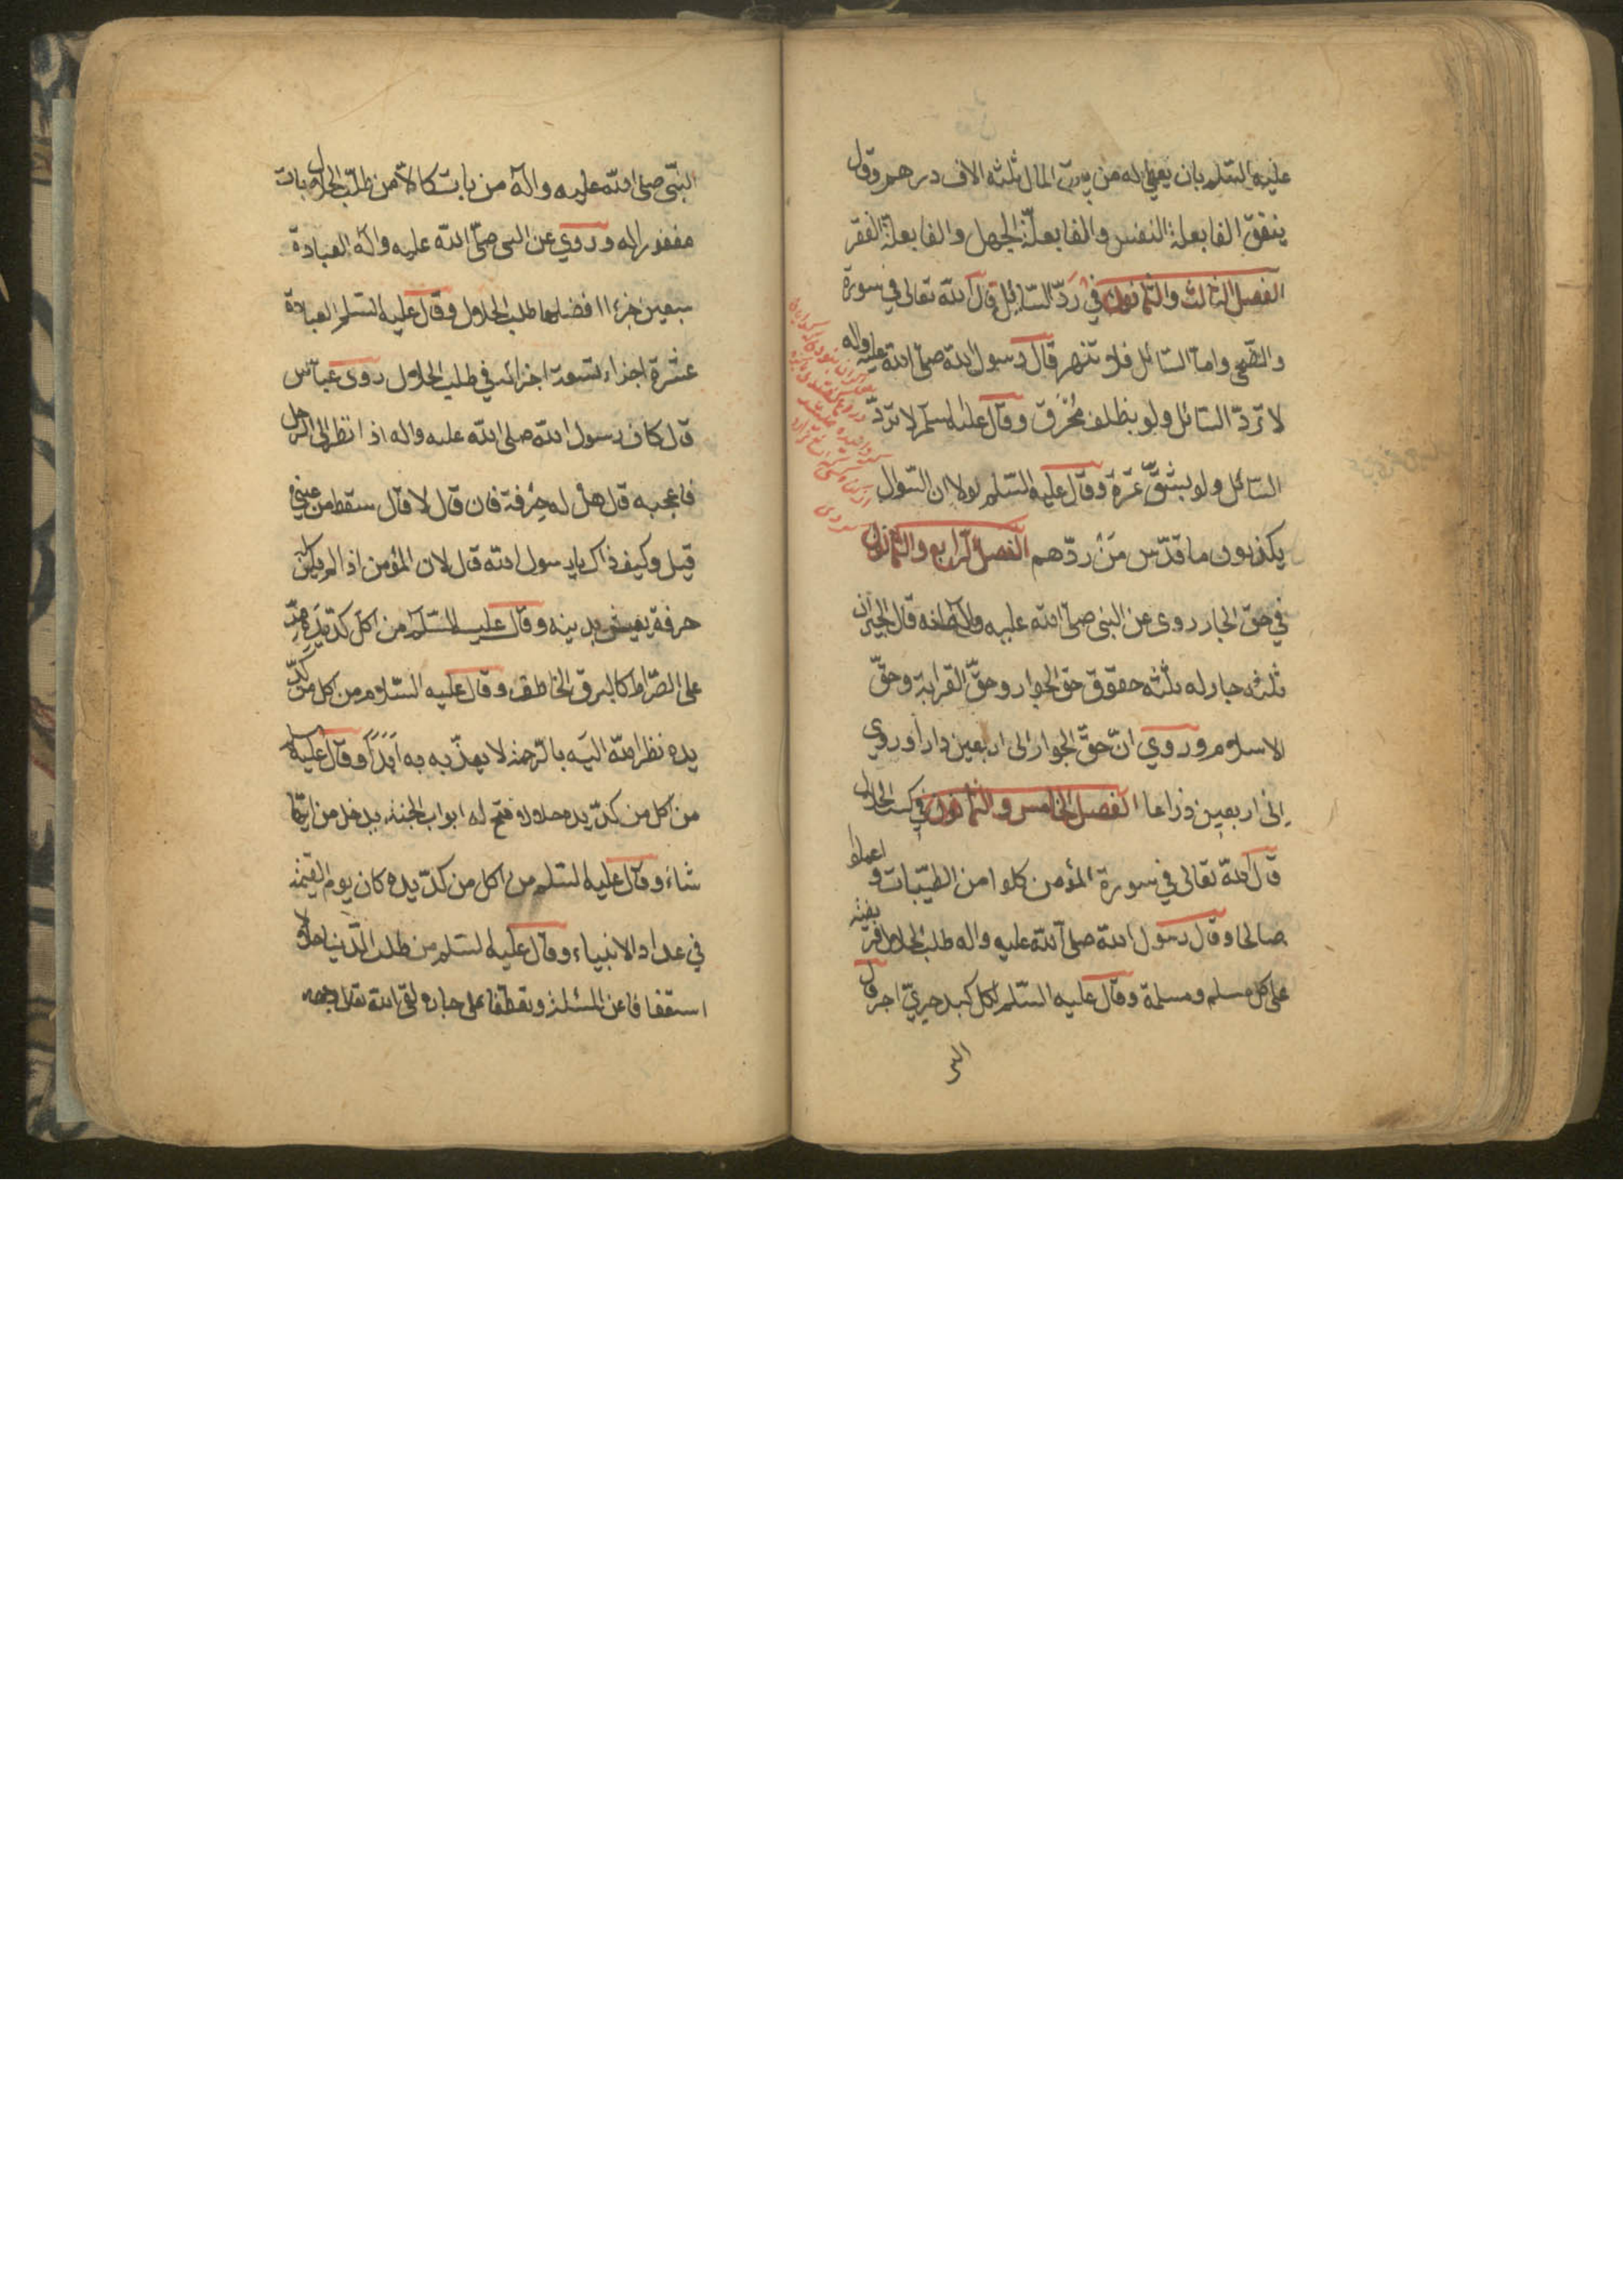 عليه السلم بان يعطى له من بيت المال ثلثه الاف درهم وقال
ينفق الفا بعلة النفس والفا بعلّة الجهل والفا بعلة الفقر
الفصل الثالث والثمانون في ردّ السّائل قال الله تعالى في سورة
والضّحى وامّا السّائل فلا تنهر قال رسول الله صلّى الله عليه واله
لا تردّ السّائل ولو بظلف مُحْرَق وقال عليه السلم لا تردّ
السّائل ولو بشقّ تمرة وقال عليه السّلم لولا ان السّوال
يكذبون ما قدّس مَنْ ردّهم الفصل الرّابع والثمانون
في حقّ الجار روى عن النبى صلّى الله عليه واله انه قال الجيران
ثلثه جار له ثلثه حقوق حق الجوار وحقّ القرابة وحقّ
الاسلام وروي انّ حقّ الجوار الى اربعين دارا وروي
الى اربعين ذراعا الفصل الخامس والثمانون في كسب الحلال
قال الله تعالى في سورة المؤمن كلوا من الطيّبات و اعملوا
صالحا وقال رسول الله صلى الله عليه واله طلب الحلال فريضة
على كل مسلم ومسلمة وقال عليه السّلم لكل كبد حريّ اجر قال
النبى
النبّى صلى الله عليه واله من بات كالاّ من طلب الحلال بات
مغفورا له وروي عن النبى صلّى الله عليه واله العبادة
سبعين جزءا افضلها طلب الحلال وقال عليه السّلم العبادة
عشرة اجزاء تسعة اجزائه في طلب الحلال روى عبّاس
قال كان رسول الله صلى الله عليه واله اذا نظر الى الرجل
فاعجبه قال هل له حِرفة فان قال لا قال سقط من عيني
قيل وكيف ذاك يا رسول الله قال لان المؤمن اذا لم يكن له
حرفة يعيش بدينه وقال عليه السّلم من اكل كدّ يده مرّ
على الصّراط كالبرق الخاطف وقال عليه السّلام من اكل من كدّ
يده نظر الله اليه بالرّحمة لا يعذّبه به ابَدَاً وقال عليه السلم
من اكل من كدّ يده حلالا فتح له ابواب الجنة يدخل من ايّها
شاء وقال عليه السّلم من اكل من كدّ يده كان يوم القيمة
في عداد الانبياء وقال عليه السّلم من طلب الدّنيا حلالا
استعفافا عن المسئلة وتعطّفا على جاره لقى الله تعالى ووجهه